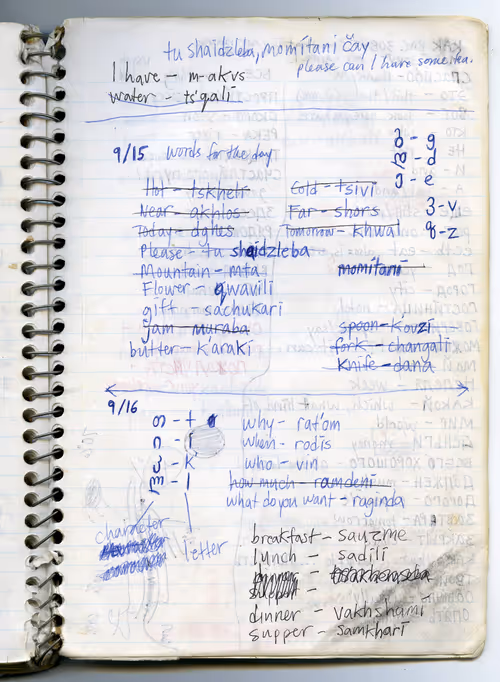 tu shaidzleba, momitani čay
please can I have some tea.
I have - m-akvs
water - ts'qali
9/15 words for the day
გ - g
დ - d
ე - e
ვ - v
ზ - z
Hot - tskheli Cold - tsivi
Near - akhlos Far - shors
Today - dghes Tomorrow - khwal
Please - tu shaidzleba
Mountain - mta momitani
Flower - qwavili
gift - sachukari
jam - muraba spoon - kovzi
butter - karaki fork - changali
knife - dana
9/16
თ - t why - rat'om
ი - i when - rodis
კ - k who - vin
ლ - l how much - ramdeni
what do you want - raginda
character letter
breakfast - sauzme
lunch - sadili
dinner - vakhshami
supper - samkhari